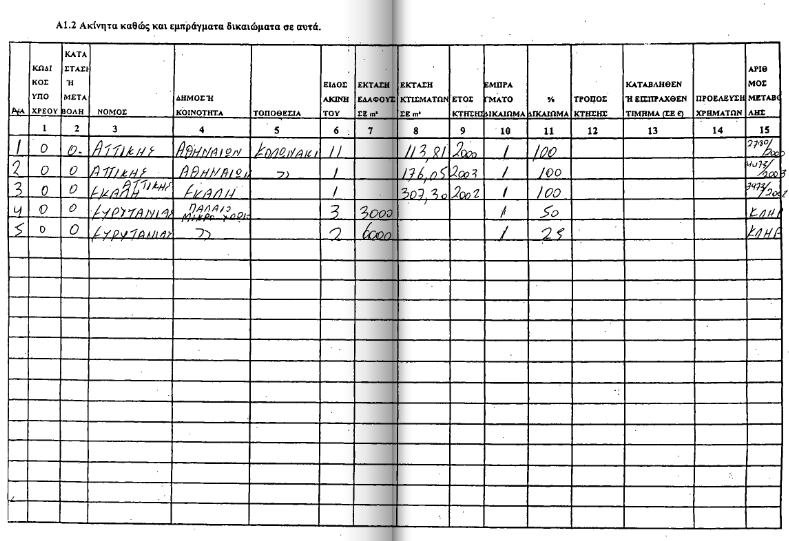 Α1.2 Ακίνητα καθώς και εμπράγματα δικαιώματα σε αυτά.
Α/Α ΚΩΔΙΚΟΣ ΥΠΟΧΡΕΟΥ ΚΑΤΑΣΤΑΣΗ Ή ΜΕΤΑΒΟΛΗ ΝΟΜΟΣ ΔΗΜΟΣ Ή ΚΟΙΝΟΤΗΤΑ ΤΟΠΟΘΕΣΙΑ ΕΙΔΟΣ ΑΚΙΝΗΤΟΥ ΕΚΤΑΣΗ ΕΔΑΦΟΥΣ ΣΕ m² ΕΚΤΑΣΗ ΚΤΙΣΜΑΤΩΝ ΣΕ m² ΕΤΟΣ ΚΤΗΣΗΣ ΕΜΠΡΑΓΜΑΤΟ ΔΙΚΑΙΩΜΑ % ΔΙΚΑΙΩΜΑ ΤΡΟΠΟΣ ΚΤΗΣΗΣ ΚΑΤΑΒΛΗΘΕΝ Ή ΕΙΣΠΡΑΧΘΕΝ ΤΙΜΗΜΑ (ΣΕ €) ΠΡΟΕΛΕΥΣΗ ΧΡΗΜΑΤΩΝ ΑΡΙΘΜΟΣ ΜΕΤΑΒΟΛΗΣ
1 2 3 4 5 6 7 8 9 10 11 12 13 14 15
1 0 0 ΑΤΤΙΚΗΣ ΑΘΗΝΑΙΩΝ ΚΟΛΩΝΑΚΙ 11 113,81 2000 1 100
2 0 0 ΑΤΤΙΚΗΣ ΑΘΗΝΑΙΩΝ 〃 1 176,05 2003 1 100
3 0 0 ΕΚΑΛΗ ΑΤΤΙΚΗΣ ΕΚΑΛΗ 1 307,30 2002 1 100
4 0 0 ΕΥΡΥΤΑΝΙΑΣ ΠΑΛΑΙΟ ΜΙΚΡΟ ΧΩΡΙ 3 3000 1 50 ΚΛΗΡ
5 0 0 ΕΥΡΥΤΑΝΙΑΣ 〃 2 6000 1 25 ΚΛΗΡ